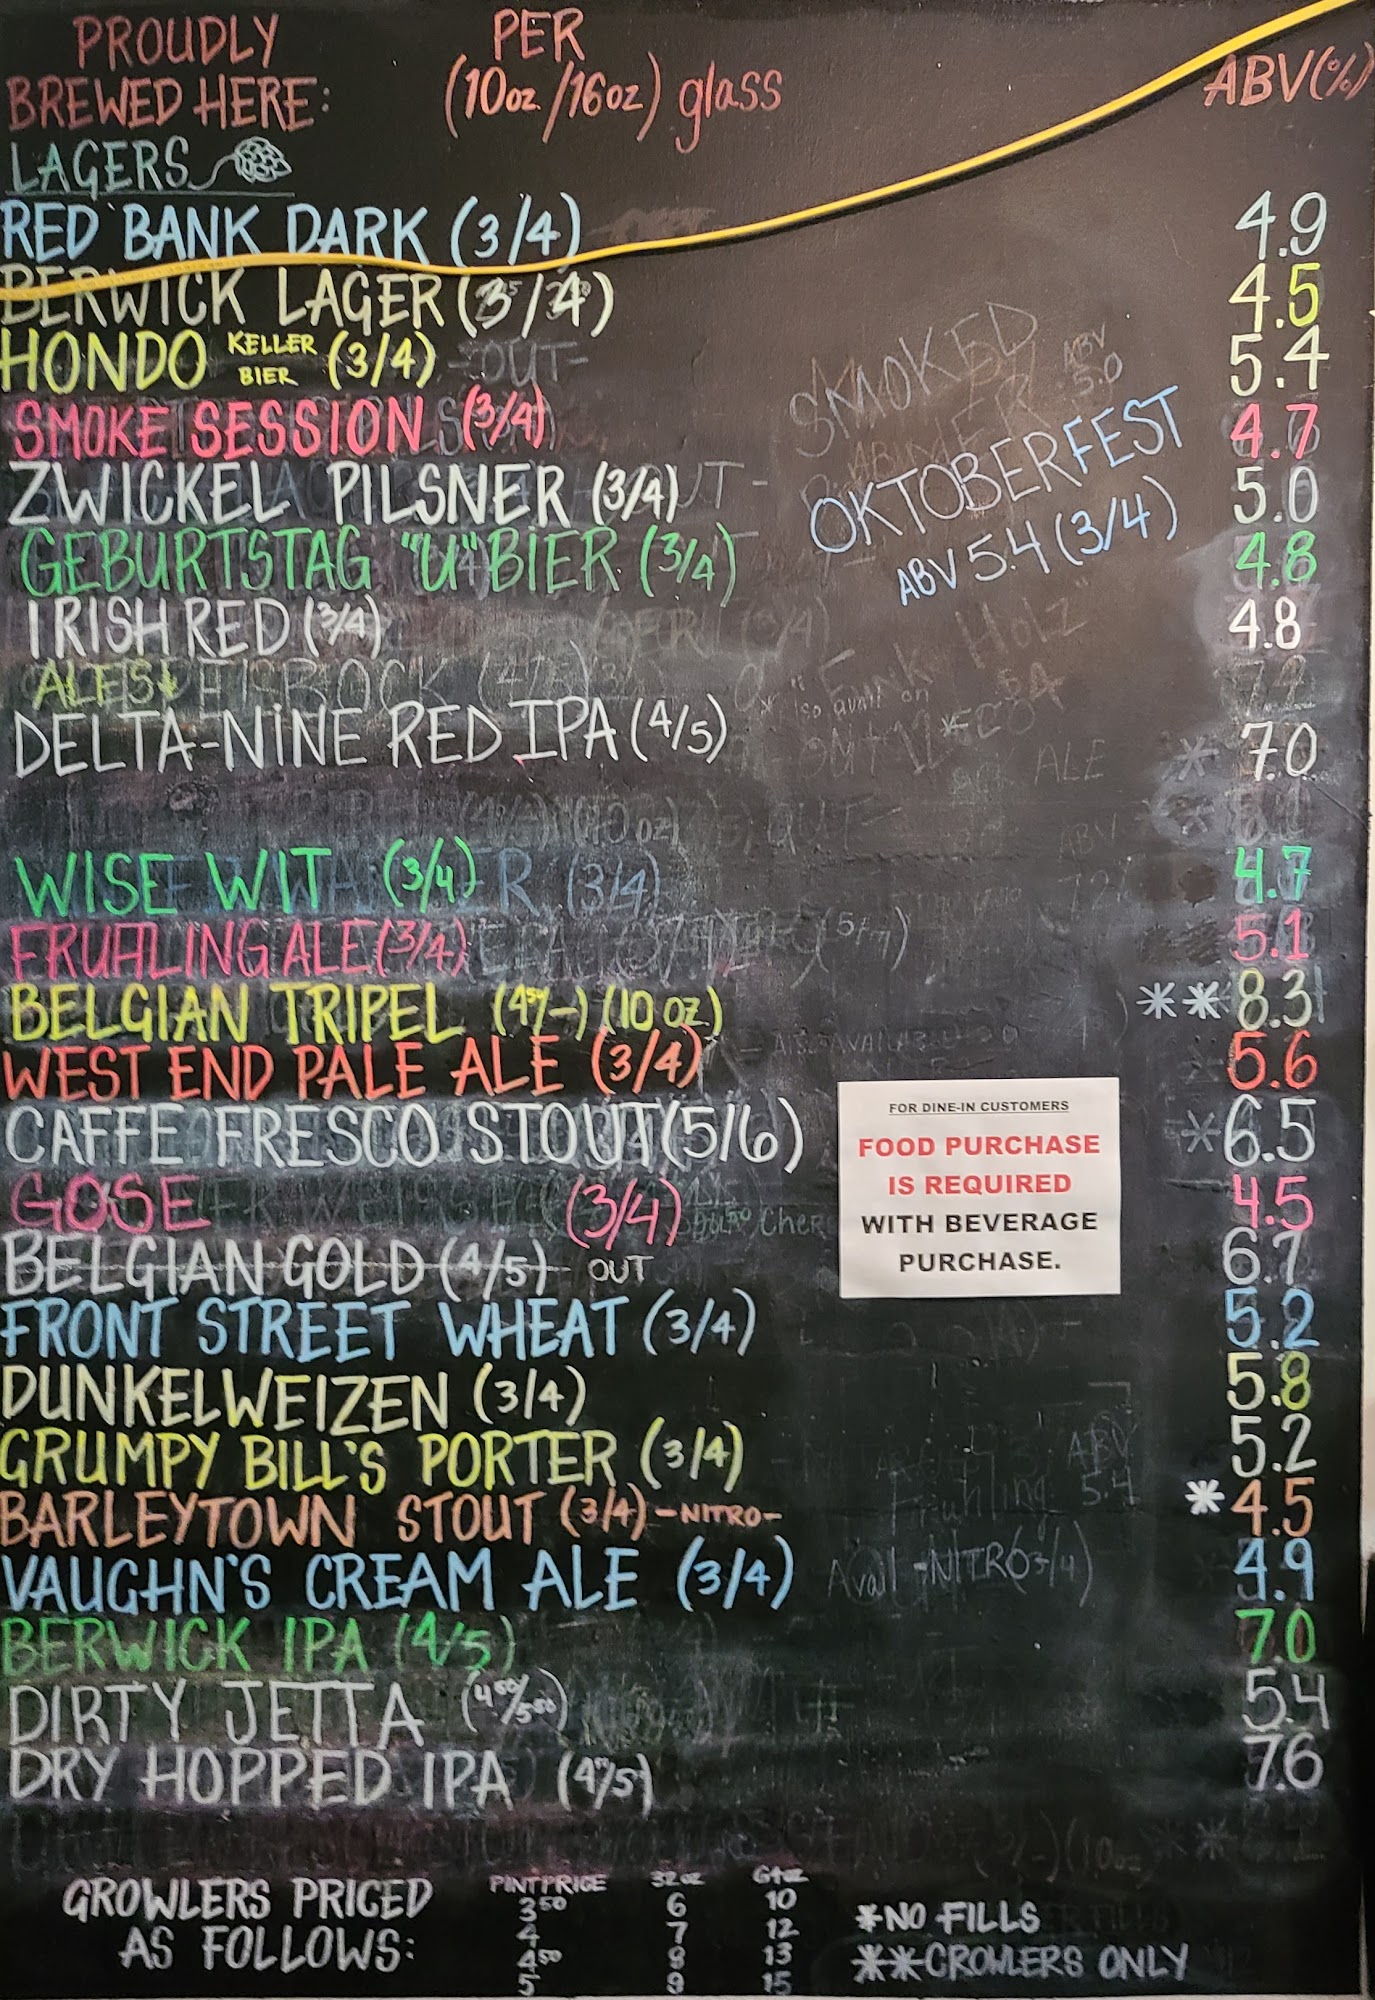 PROUDLY
BREWED HERE:
PER
(10oz/16oz) glass
ABV(%)
LAGERS
RED BANK DARK (3/4) 4.9
BERWICK LAGER (3/4) 4.5
HONDO KELLER BIER (3/4) 5.4
SMOKE SESSION (3/4) 4.7
ZWICKEL PILSNER (3/4) 5.0
GEBURTSTAG "U" BIER (3/4) 4.8
IRISH RED (3/4) 4.8
SMOKED
ABV
5.0
OKTOBERFEST
ABV 5.4 (3/4)
ALES
DELTA-NINE RED IPA (4/5) 7.0
WISE WIT (3/4) 4.7
FRUHLING ALE (3/4) 5.1
BELGIAN TRIPEL (10 OZ) **8.3
WEST END PALE ALE (3/4) 5.6
CAFFE FRESCO STOUT (5/6) *6.5
GOSE (3/4) 4.5
BELGIAN GOLD (4/5) OUT 6.7
FRONT STREET WHEAT (3/4) 5.2
DUNKELWEIZEN (3/4) 5.8
GRUMPY BILL'S PORTER (3/4) 5.2
BARLEYTOWN STOUT (3/4) -NITRO- *4.5
VAUGHN'S CREAM ALE (3/4) 4.9
BERWICK IPA (4/5) 7.0
DIRTY JETTA (4.50/5.50) 5.4
DRY HOPPED IPA 7.6
FOR DINE-IN CUSTOMERS
FOOD PURCHASE
IS REQUIRED
WITH BEVERAGE
PURCHASE.
GROWLERS PRICED
AS FOLLOWS:
PINT PRICE 32oz 64oz
3.50 6 10
4 7 12
4.50 8 13
5 9 15
*NO FILLS
**CROWLERS ONLY